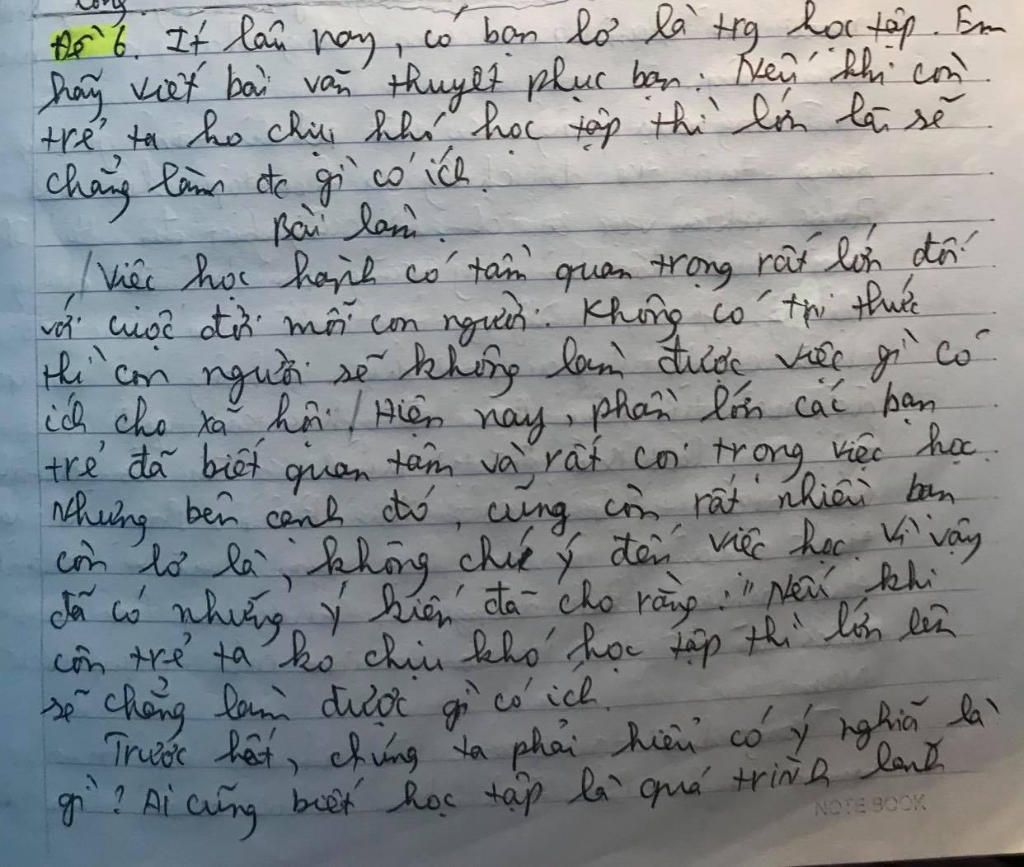 Đề 6. Ít lâu nay, có bạn lơ là trg học tập. Em
hãy viết bài văn thuyết phục bạn: Nếu khi còn
trẻ ta ko chịu khó học tập thì lớn lên sẽ
chẳng làm đc gì có ích.
Bài làm.
/ Việc học hành có tầm quan trọng rất lớn đối
với cuộc đời mỗi con người. Không có tri thức
thì con người sẽ không làm được việc gì có
ích cho xã hội / Hiện nay, phần lớn các bạn
trẻ đã biết quan tâm và rất coi trọng việc học.
Nhưng bên cạnh đó, cũng còn rất nhiều bạn
còn lơ là, không chú ý đến việc học. Vì vậy
đã có những ý kiến đã cho rằng: "Nếu khi
còn trẻ ta ko chịu khó học tập thì lớn lên
sẽ chẳng làm được gì có ích.
Trước hết, chúng ta phải hiểu có ý nghĩa là
gì? Ai cũng biết học tập là quá trình lĩnh
NOTE BOOK